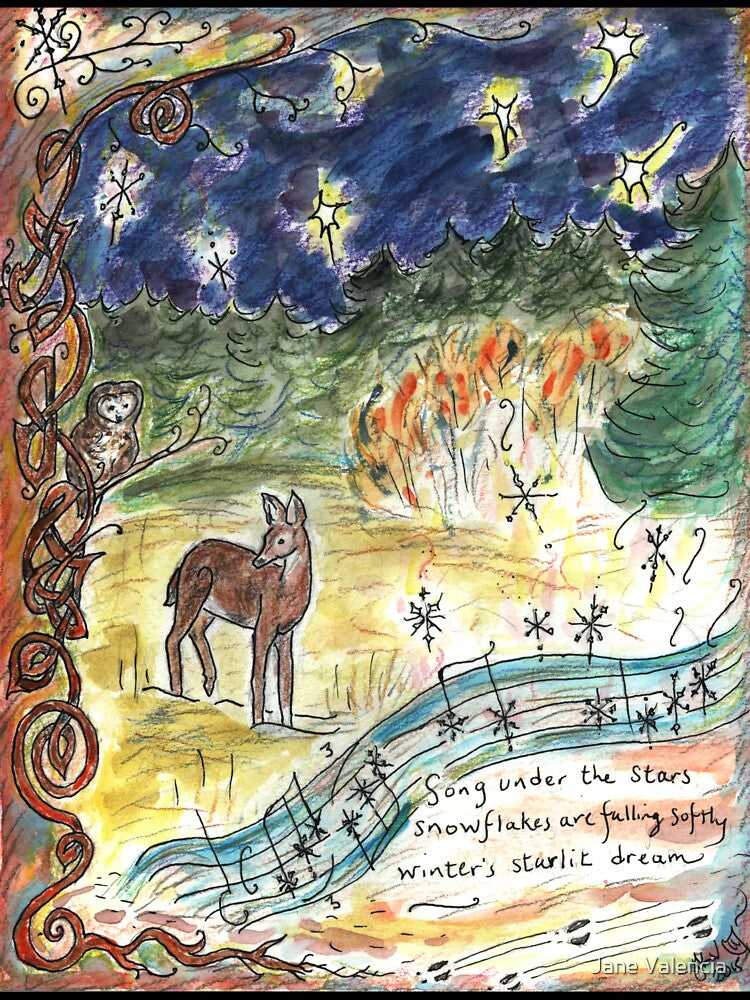 3
Song under the Stars
snowflakes are falling softly
winter's starlit dream
3
Jane Valencia